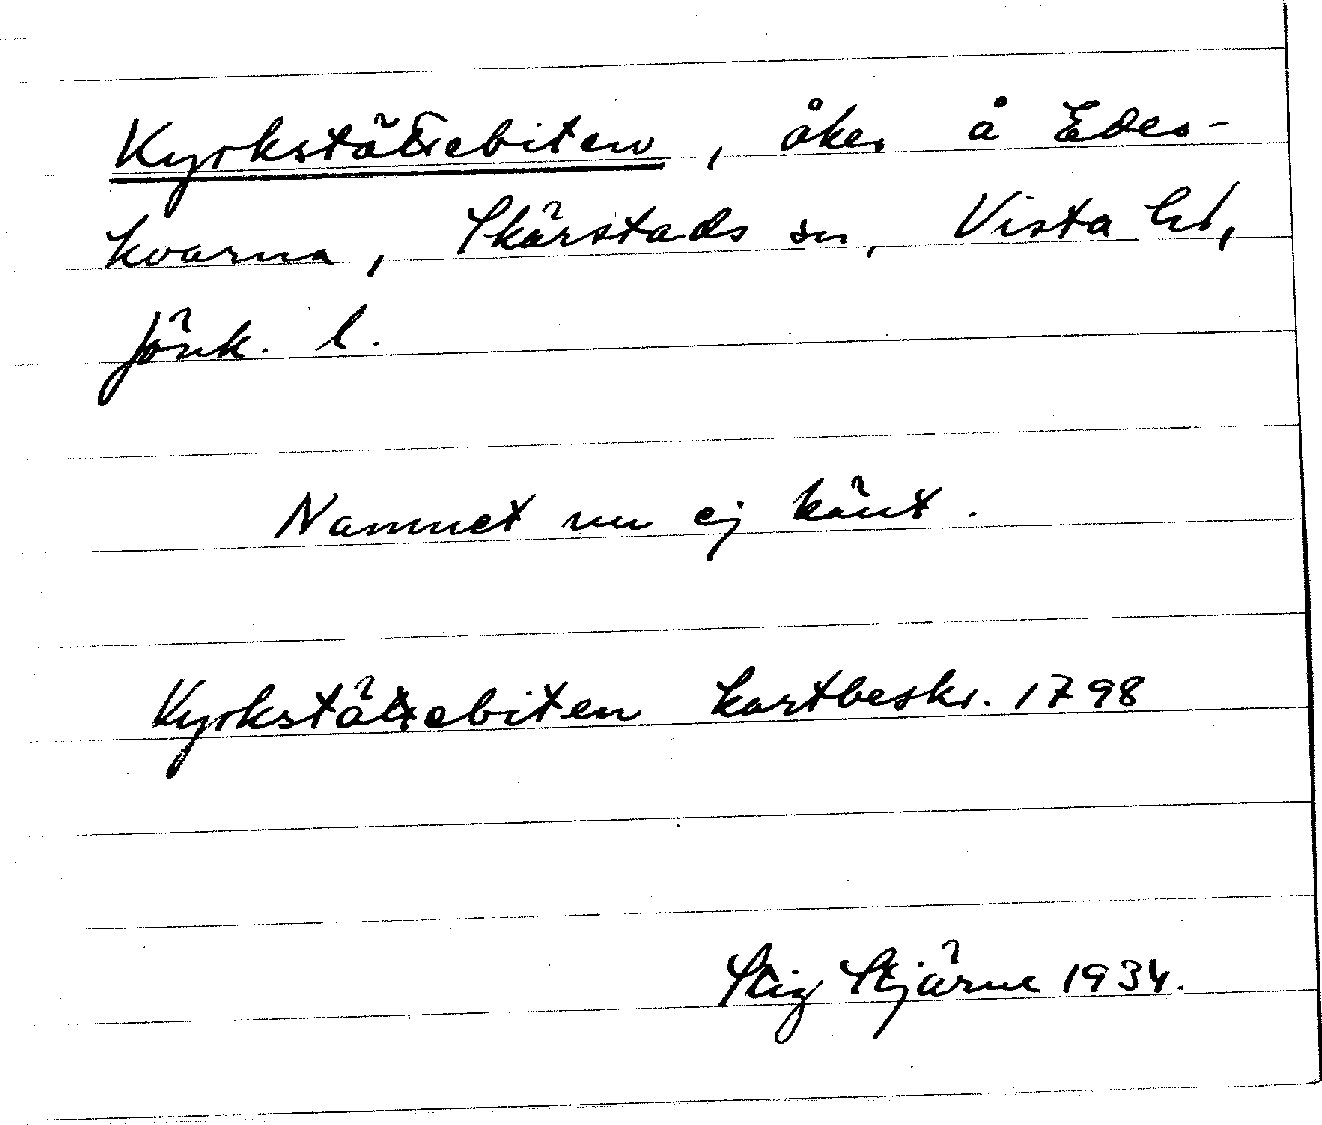 Kyrkstättebiten, åker å Edes-
kvarna, Skärstads sn, Vista hd,
Jönk. l.
Namnet nu ej känt.
Kyrkstättebiten kartbeskr. 1798
Stig Stjärne 1934.